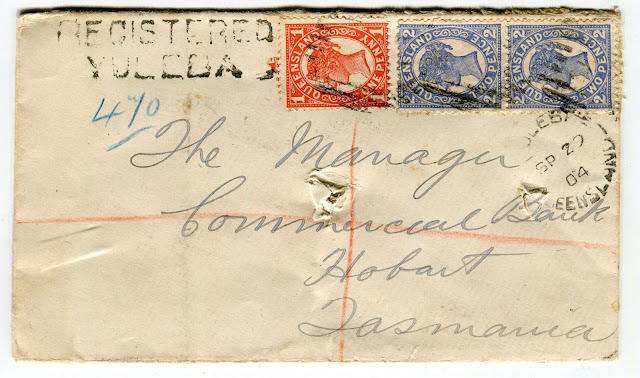 REGISTERED
YULEBA
4/0
QUEENSLAND
ONE PENNY
1 1
QUEENSLAND
TWO PENCE
2 2
QUEENSLAND
TWO PENCE
2 2
SP 29
04
QUEENSLAND
The Manager
Commercial Bank
Hobart
Tasmania